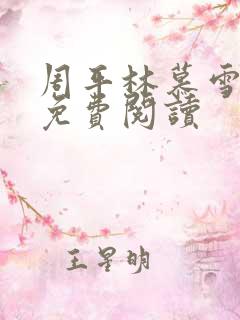 周平林慕雪
免費閱讀
王星明